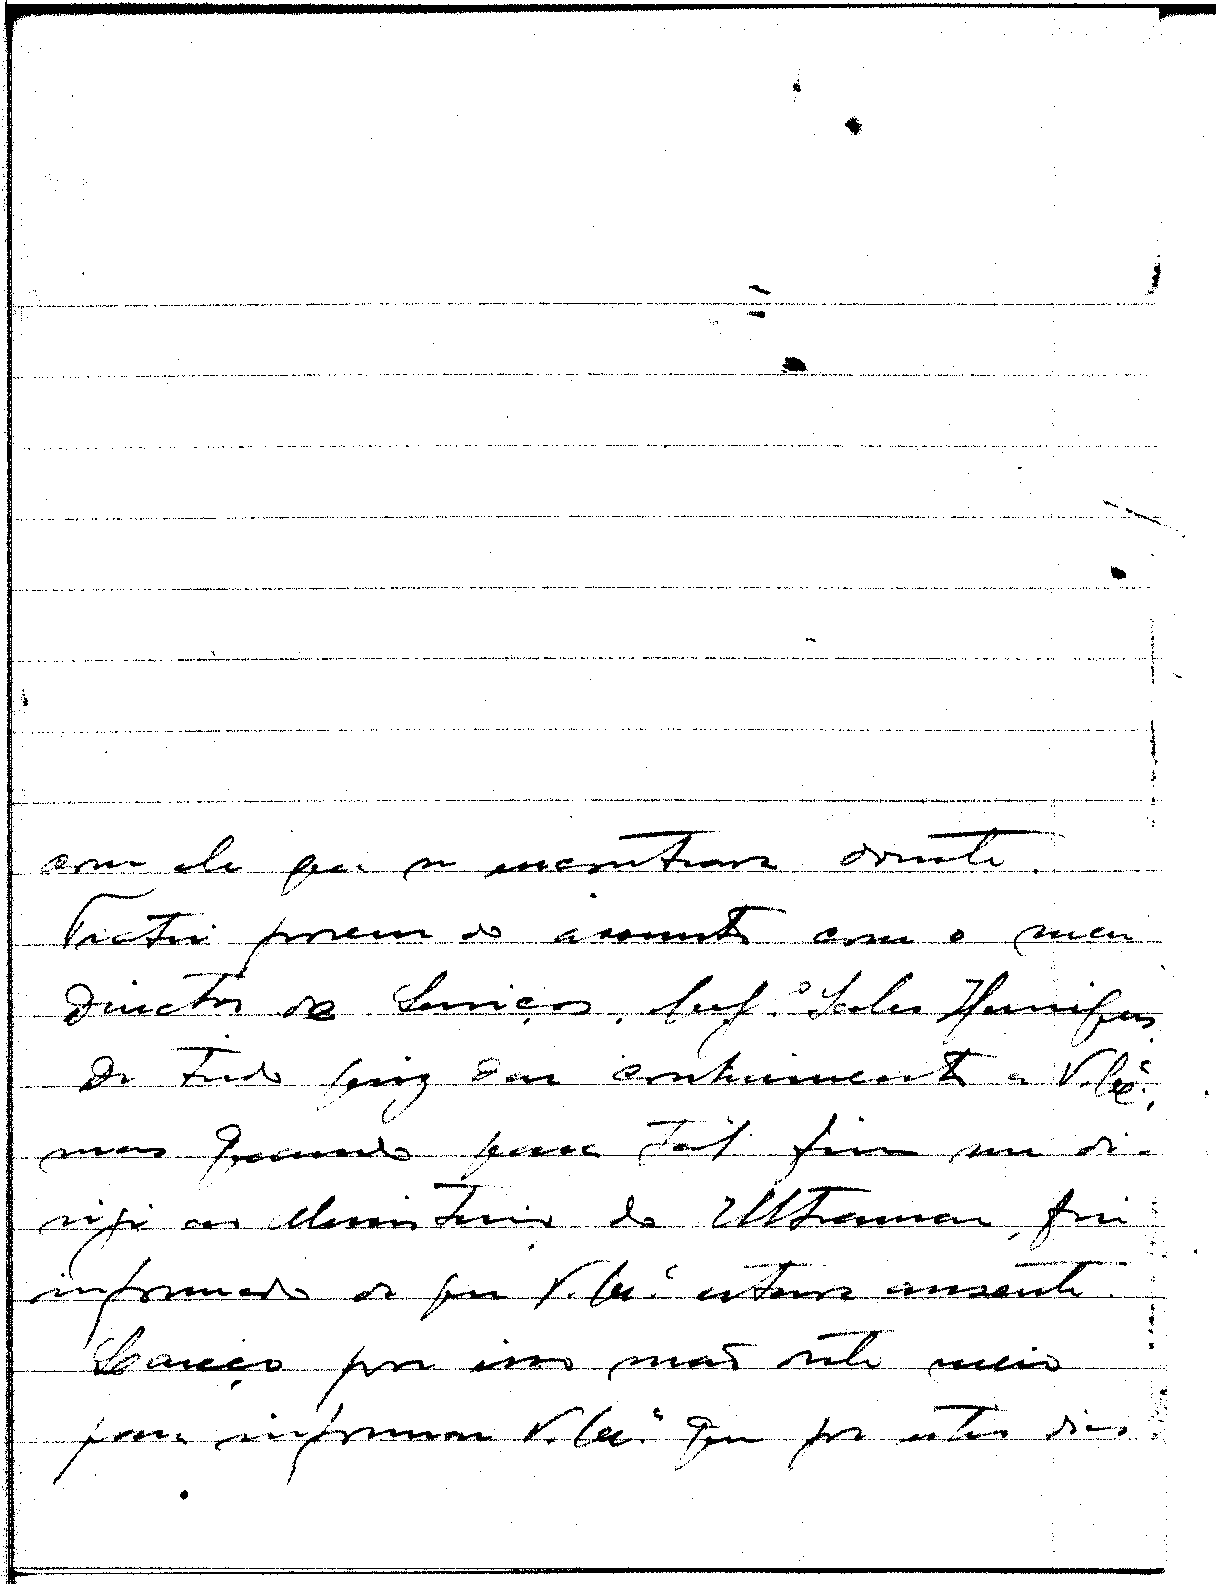 com ele que se encontrava doente.
Tratei porem do assunto com o meu
Director de Serviços, Eng.º Sales Henriques.
De tudo quiz dar conhecimento a V. Ex.ª,
mas quando para tal fim me di-
rigi ao Ministerio do Ultramar, fui
informado de que V. Ex.ª estava ausente.
Lanço por isso mão deste meio
para informar V. Ex.ª que por estes dias